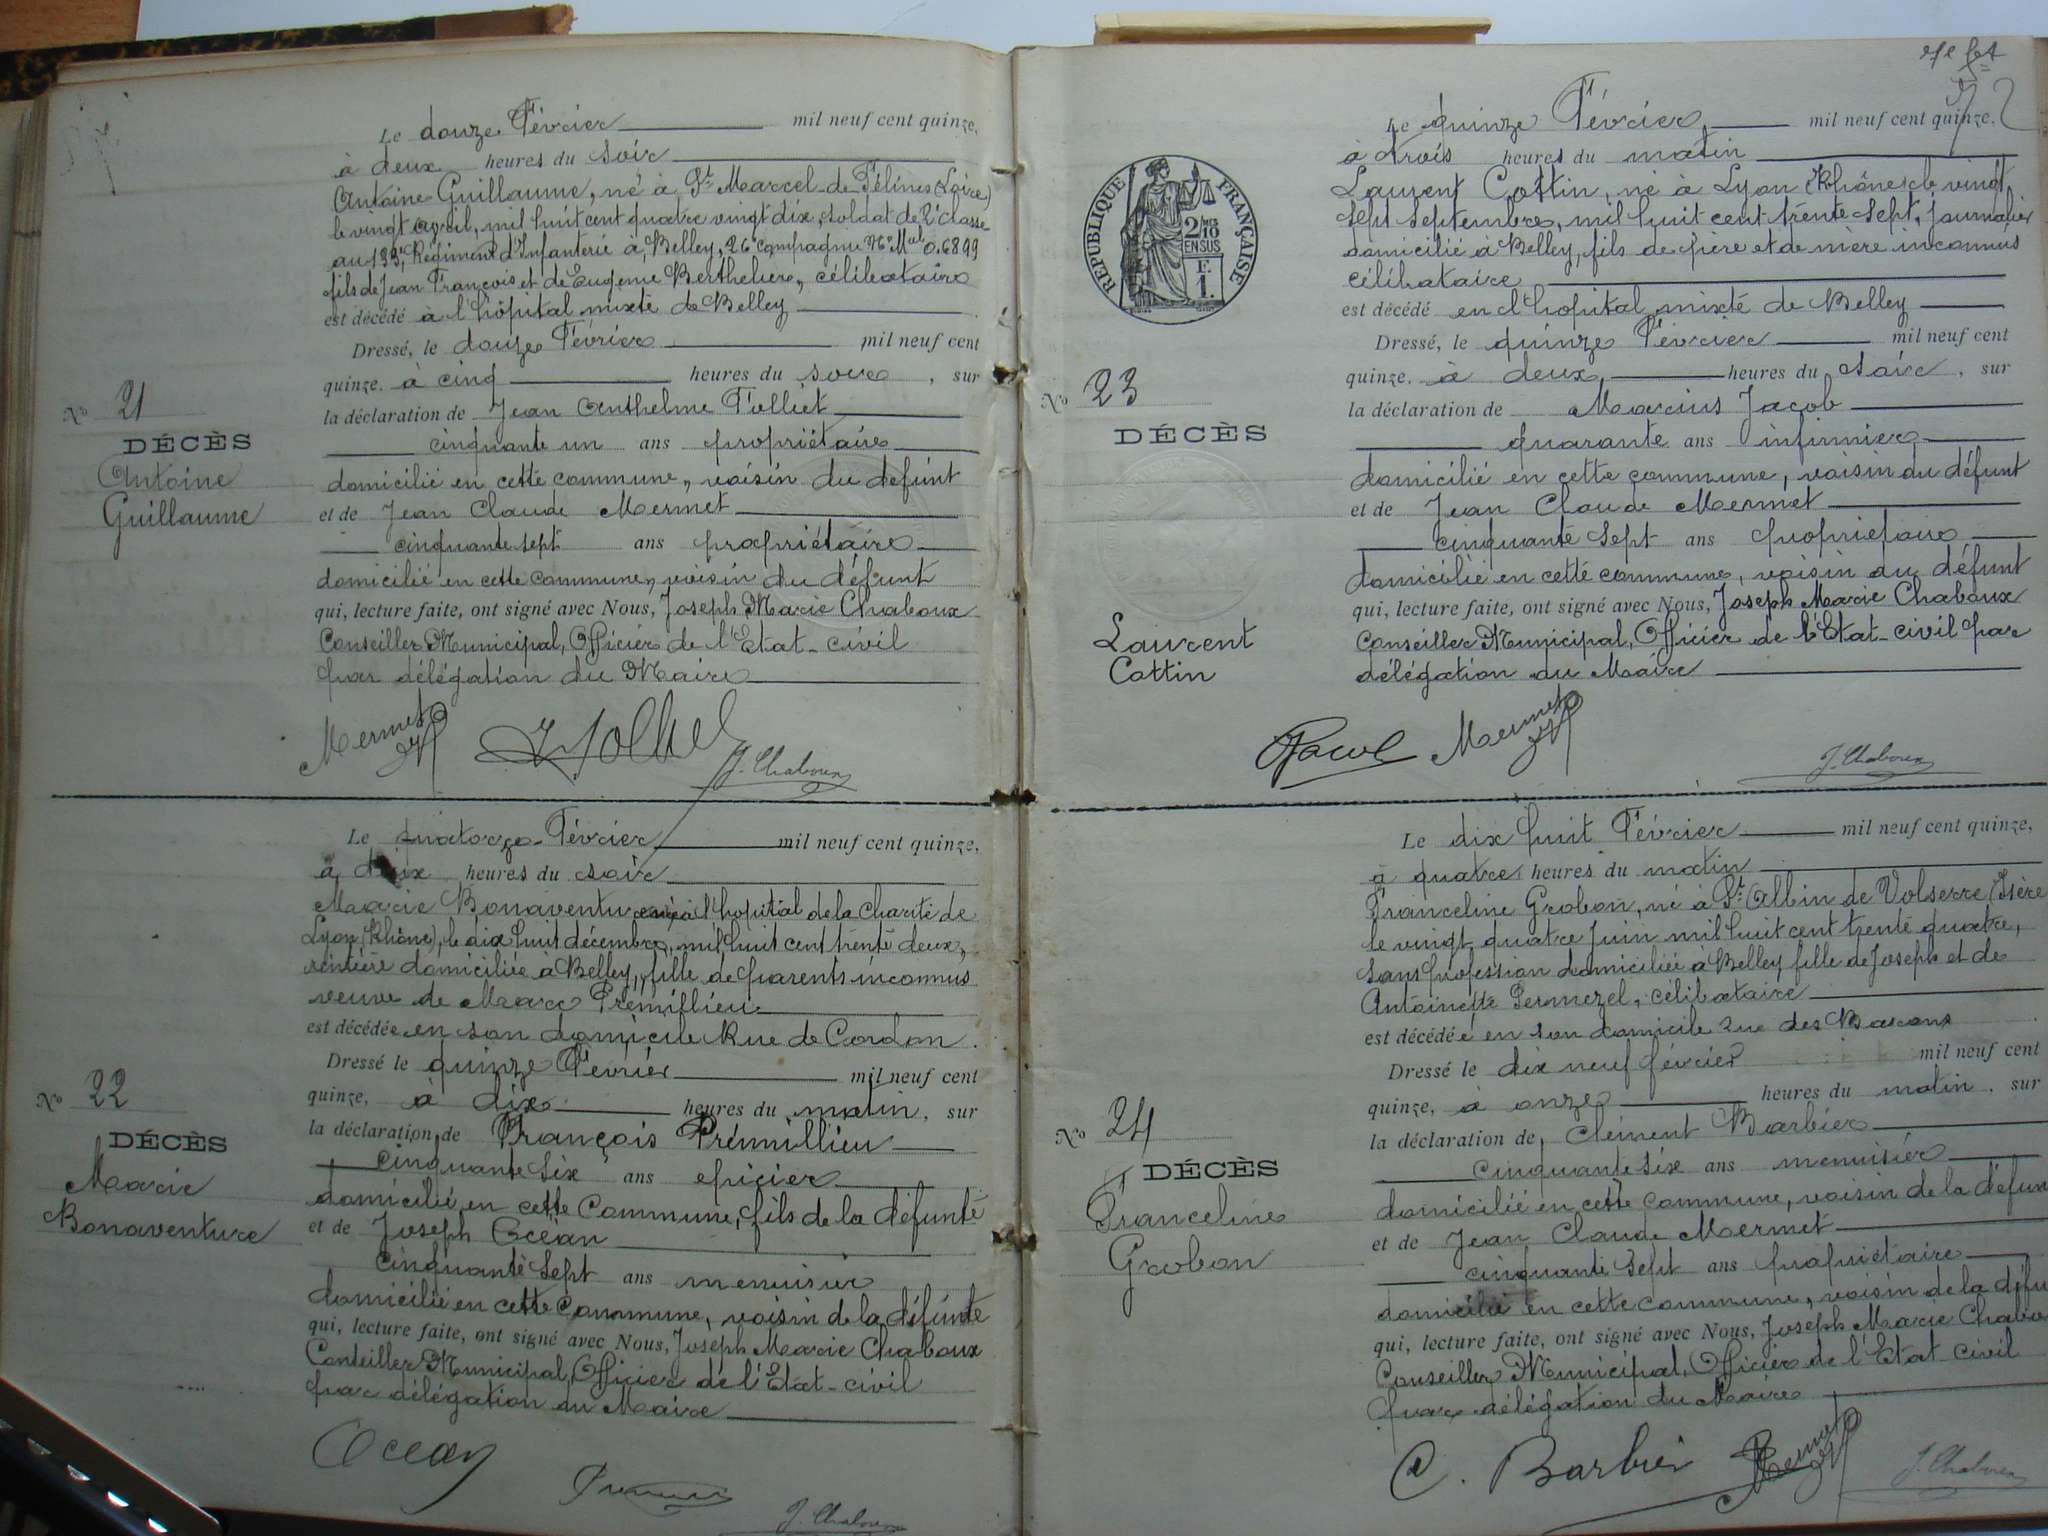 Le douze Février mil neuf cent quinze,
à deux heures du soir
Antoine Guillaume, né à St Marcel-de-Félines (Loire)
le vingt avril, mil huit cent quatre vingt dix, soldat de 2e classe
au 133e Régiment d'Infanterie à Belley, 26e Compagnie No Mal 0.6899
fils de Jean François et de Eugénie Berthelier, célibataire
est décédé à l'hôpital mixte de Belley
Dressé, le douze Février mil neuf cent
quinze. à cinq heures du soir, sur
No 21
la déclaration de Jean Anthelme Tolliet
DÉCÈS
cinquante un ans propriétaire
Antoine
domicilié en cette commune, voisin du défunt
Guillaume
et de Jean Claude Mermet
cinquante sept ans propriétaire
domicilié en cette commune, voisin du défunt
qui, lecture faite, ont signé avec Nous, Joseph Marie Chaboux
Conseiller Municipal, Officier de l'Etat-civil
par délégation du Maire
Mermet
J. Chaboux
Le quatorze Février mil neuf cent quinze,
à heures du soir
Marie Bonaventure née à l'hopital de la Charité de
Lyon (Rhône), le dix huit décembre, mil huit cent trente deux,
rentière domiciliée à Belley, fille de parents inconnus
veuve de Marc Prémillieu
est décédée en son domicile Rue de Cordon.
Dressé le quinze Février mil neuf cent
No 22
quinze, à dix heures du matin, sur
DÉCÈS
la déclaration de François Prémillieu
Marie
cinquante six ans epicier
Bonaventure
domicilié en cette Commune, fils de la défunte
et de Joseph Océan
cinquante sept ans menuisier
domicilié en cette Commune, voisin de la défunte
qui, lecture faite, ont signé avec Nous, Joseph Marie Chaboux
Conseiller Municipal, Officier de l'Etat-civil
par délégation du Maire
Ocean
J. Chaboux
Le quinze Février, mil neuf cent quinze.
à trois heures du matin
RÉPUBLIQUE FRANÇAISE
2/10 EN SUS
F. 1.
Laurent Cottin, né à Lyon (Rhône) le vingt
sept septembre, mil huit cent trente sept, journalier
domicilié à Belley, fils de père et de mère inconnus
célibataire
est décédé en l'hopital mixte de Belley
Dressé, le quinze Février mil neuf cent
No 23
quinze. à deux heures du soir, sur
DÉCÈS
la déclaration de Marius Jacob
quarante ans infirmier
domicilié en cette commune, voisin du défunt
et de Jean Claude Mermet
cinquante sept ans propriétaire
domicilié en cette commune, voisin du défunt
qui, lecture faite, ont signé avec Nous, Joseph Marie Chaboux
Laurent
Conseiller Municipal, Officier de l'Etat-civil par
Cottin
délégation du Maire
Jacob Mermet
J. Chaboux
Le dix huit Février mil neuf cent quinze,
à quatre heures du matin
Franceline Grobon, né à St Albin de Volserre (Isère
le vingt quatre Juin mil huit cent trente quatre,
sans profession domiciliée à Belley fille de Joseph et de
Antoinette Permezel, célibataire
est décédée en son domicile rue des Barons
Dressé le dix neuf février mil neuf cent
No 24
quinze, à onze heures du matin, sur
DÉCÈS
la déclaration de Clément Barbier
Franceline
cinquante six ans menuisier
Grobon
domicilié en cette commune, voisin de la défun
et de Jean Claude Mermet
cinquante sept ans propriétaire
domicilié en cette commune, voisin de la défu
qui, lecture faite, ont signé avec Nous, Joseph Marie Chabou
Conseiller Municipal, Officier de l'Etat civil
par délégation du Maire
C. Barbier Mermet
J. Chaboux